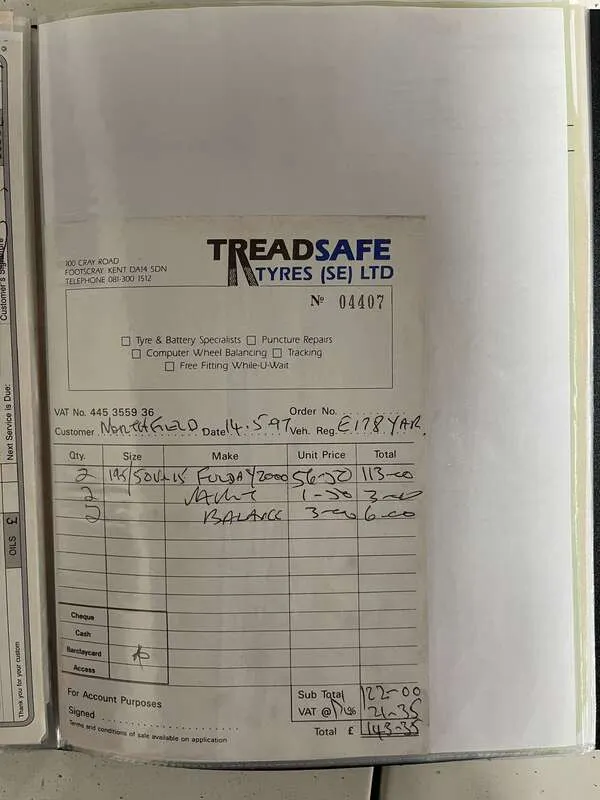 TREADSAFE
TYRES (SE) LTD
100 CRAY ROAD
FOOTSCRAY KENT DA14 5DN
TELEPHONE 081-300 1512
Nº 04407
Tyre & Battery Specialists Puncture Repairs
Computer Wheel Balancing Tracking
Free Fitting While-U-Wait
VAT No. 445 3559 36 Order No.
Customer NORTHFIELD Date 14.5.97 Veh. Reg. E178 YAR
Qty. Size Make Unit Price Total
2 195/50 15 FULDA Y2000 56-50 113-00
2 1-50 3-00
2 BALANCE 3-00 6-00
Cheque
Cash
Barclaycard
Access
For Account Purposes
Signed
Terms and conditions of sale available on application
Sub Total 122-00
VAT @ % 21-35
Total £ 143-35
Customer's Signature
Next Service is Due:
OILS £
Thank you for your custom